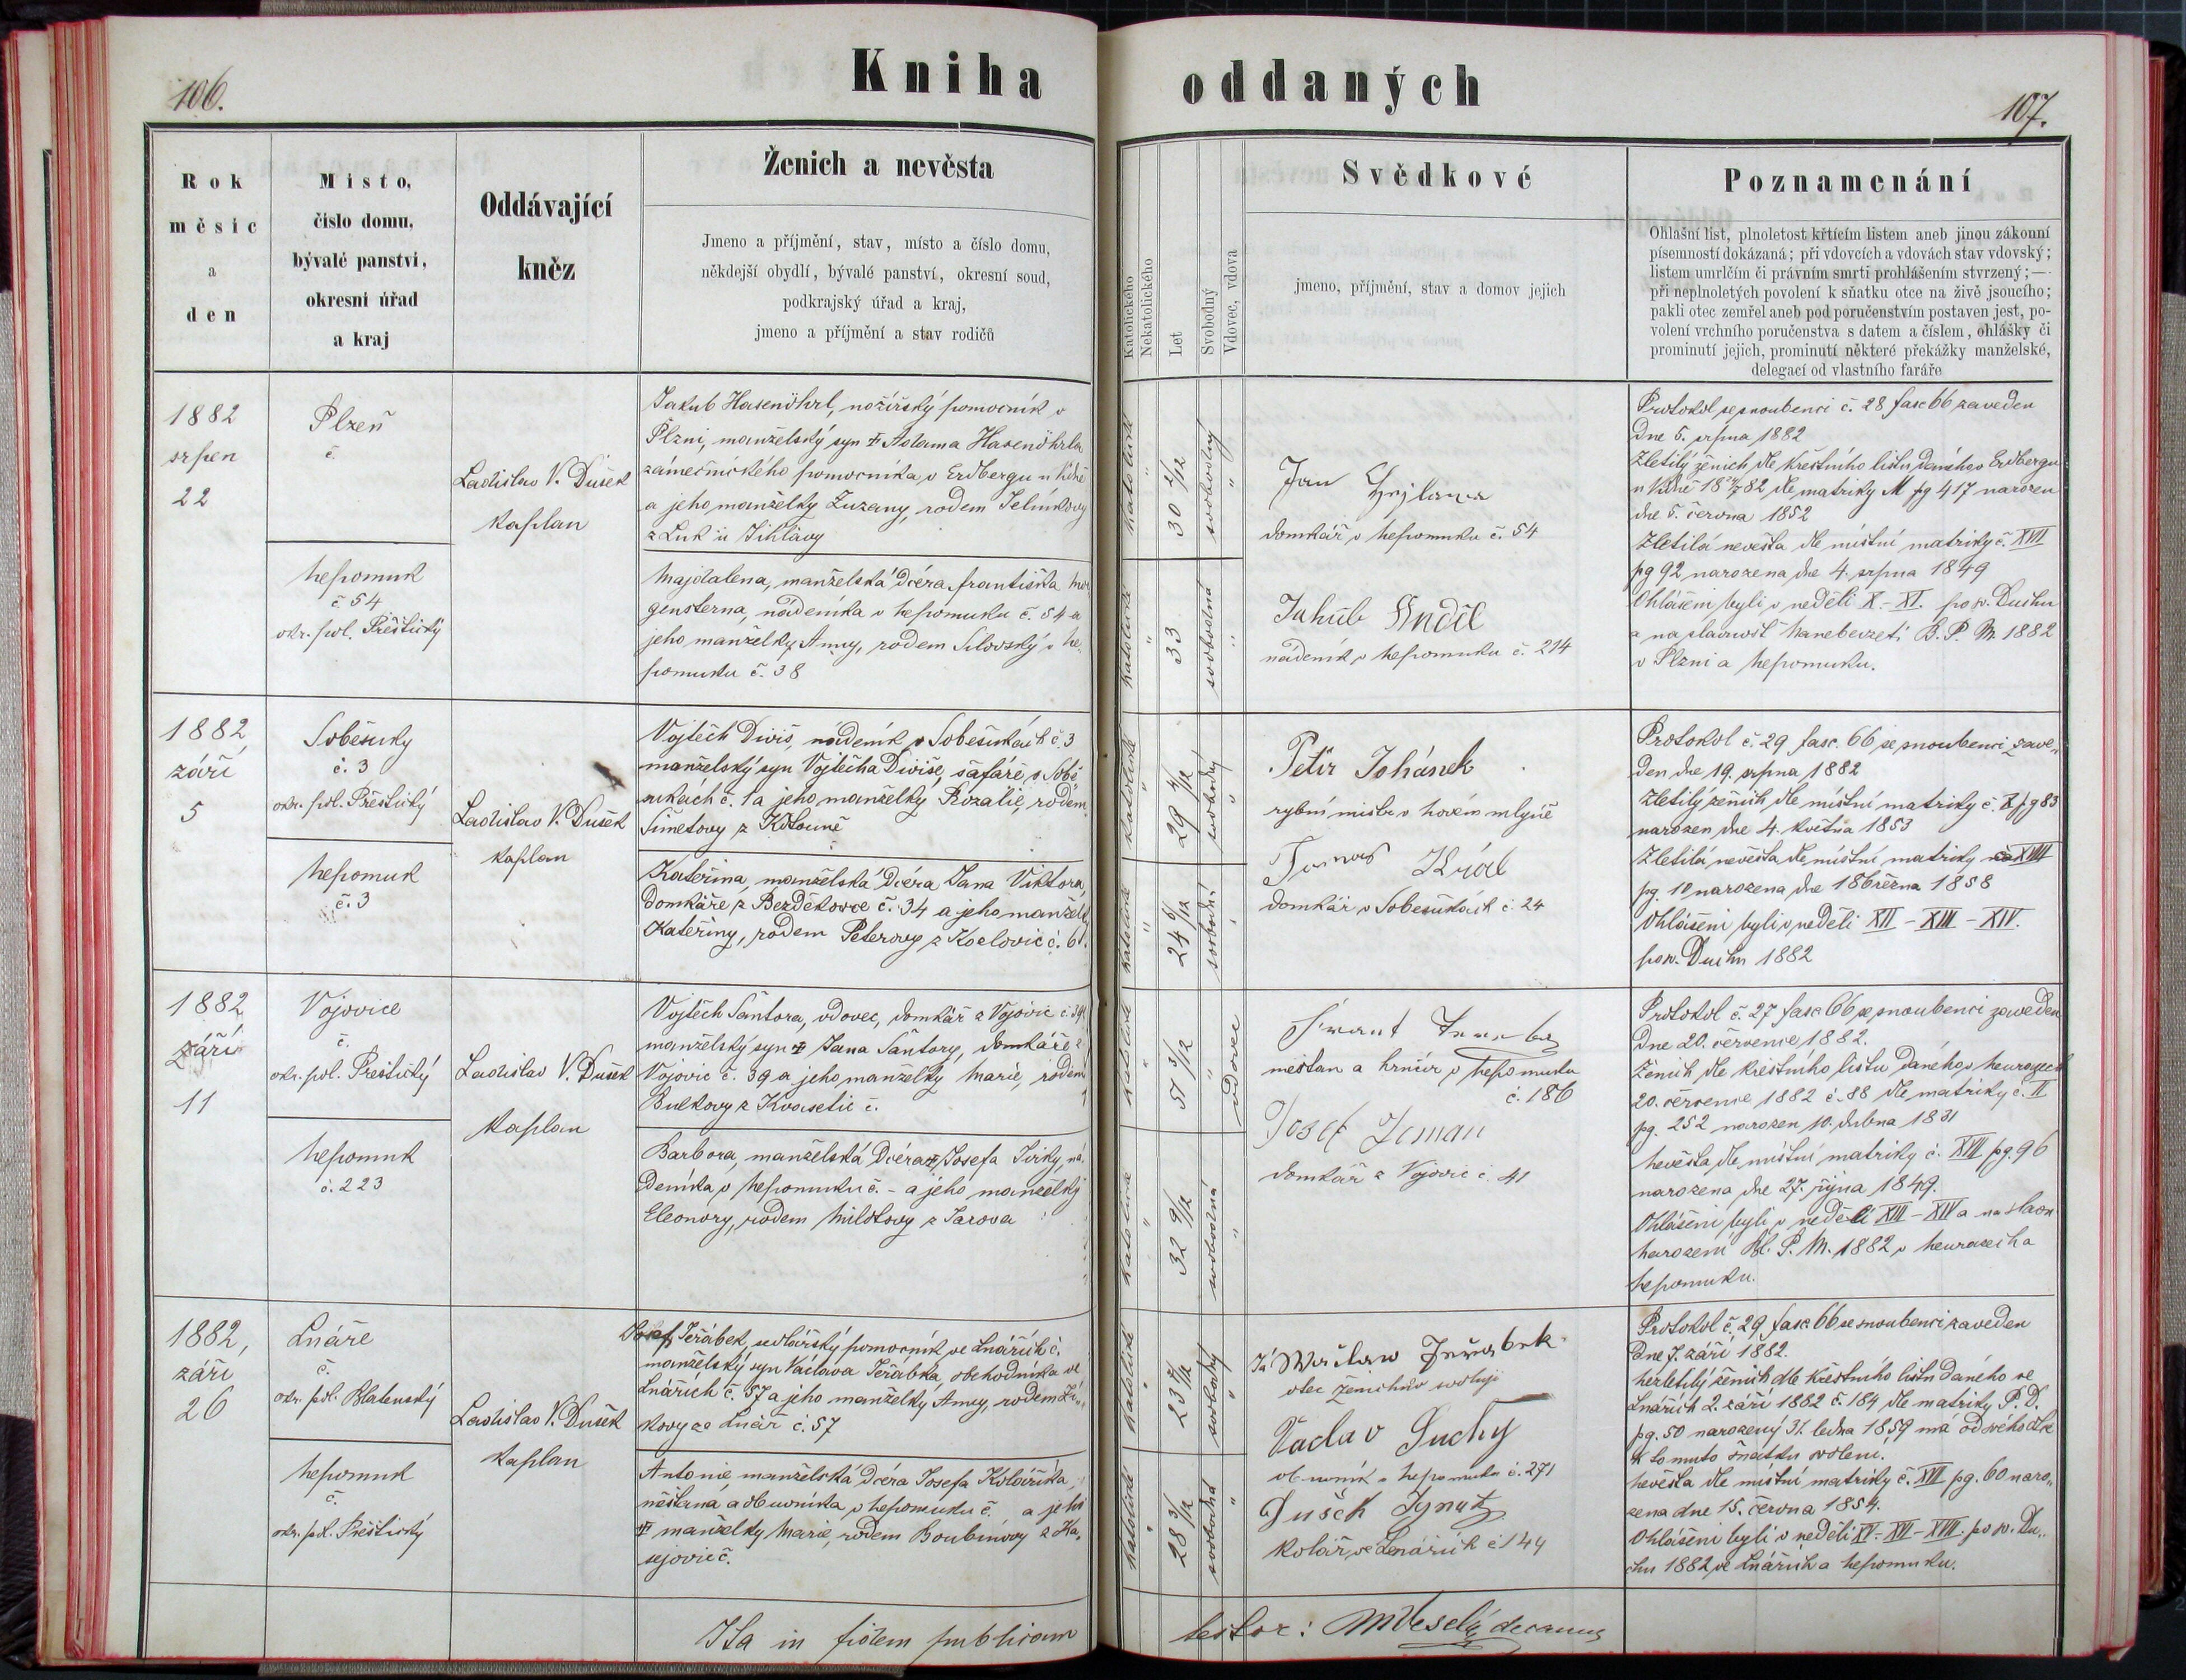 106.
Kniha oddaných
107.
Rok
měsíc
a
den
Místo,
číslo domu,
bývalé panství,
okresní úřad
a kraj
Oddávající
kněz
Ženich a nevěsta
Jmeno a příjmění, stav, místo a číslo domu,
někdejší obydlí, bývalé panství, okresní soud,
podkrajský úřad a kraj,
jmeno a příjmění a stav rodičů
Katolického
Nekatolického
Let
Svobodný
Vdovec, vdova
Svědkové
jmeno, příjmění, stav a domov jejich
Poznamenání
Ohlašní list, plnoletost křticím listem aneb jinou zákonní
písemností dokázaná; při vdovcích a vdovách stav vdovský;
listem umrlčím či právním smrti prohlášením stvrzený;—
při neplnoletých povolení k sňatku otce na živě jsoucího;
pakli otec zemřel aneb pod poručenstvím postaven jest, po-
volení vrchního poručenstva s datem a číslem, ohlášky či
prominutí jejich, prominutí některé překážky manželské,
delegací od vlastního faráře
1882
srpen
22
Plzeň
č.
Nepomuk
č. 54
okr. pol. Přeštický
Ladislav V. Dušek
kaplan
Jakub Hasenöhrl, nožířský pomocník v
Plzni, manželský syn Adama Hasenöhrla
zámečnického pomocníka v Erdbergu u Vídně
a jeho manželky Zuzany, rodem Jelínkovy
z Luk u Jihlavy
Majdalena, manželská dcéra Františka Mor
gensterna, nádeníka v Nepomuku č. 54 a
jeho manželky Anny, rodem Silovský v Ne-
pomuku č. 38
katolické
"
30 2/12
svobodný
"
katolické
"
33
svobodná
"
Jan
domkář v Nepomuku č. 54
Jakub Anděl
nádeník v Nepomuku č. 214
Protokol se snoubenci č. 28 fasc 66 zaveden
dne 5. srpna 1882
Zletilý ženich dle křestního listu daného v Erdbergu
u Vídně 1882 dle matriky M pg 417 narozen
dne 5. června 1852
Zletilá nevěsta dle místní matriky č. XVII
pg 92 narozena dne 4. srpna 1849
Ohlášeni byli v neděli X.-XI. po sv. Duchu
a na slavnosť Nanebevzetí B. P. M. 1882
v Plzni a Nepomuku.
1882
září
5
Soběsuky
č. 3
okr. pol. Přeštický
Nepomuk
č. 3
Ladislav V. Dušek
kaplan
Vojtěch Diviš, nádeník v Soběsukách č. 3
manželský syn Vojtěcha Diviše, šafáře v Sobě
sukách č. 1 a jeho manželky Rozalie, rodem
Šimetovy z Kotouně
Kateřina, manželská dcéra Jana Viktora,
domkáře z Bezděkovce č. 34 a jeho manželk.
Kateřiny, rodem Peterovy z Kozlovic č. 61.
katolické
"
29 4/12
svobodný
"
katolické
"
24 6/12
svobodná
"
Petr Johánek
rybní mistr v Novém mlýně
Tomáš Král
domkář v Soběsukách č. 24
Protokol č. 29 fasc. 66 se snoubenci zave-
den dne 19. srpna 1882
Zletilý ženich dle místní matriky č. X pg 83
narozen dne 4. května 1853
Zletilá nevěsta dle místní matriky XVIII
pg. 10 narozena dne 18 března 1858
Ohlášeni byli v neděli XII - XIII - XIV.
po sv. Duchu 1882
1882
září
11
Vojovice
č.
okr. pol. Přeštický
Nepomuk
č. 223
Ladislav V. Dušek
kaplan
Vojtěch Šantora, vdovec, domkář z Vojovic č. 39
manželský syn Jana Šantory, domkáře z
Vojovic č. 39 a jeho manželky Marie, rodem
Bulkovy z Kvasetic č.
Barbora, manželská dcéra Josefa Jirky, ná-
deníka v Nepomuku č. - a jeho manželky
Eleonory, rodem Milotovy z Jarova
katolické
"
51 5/12
"
vdovec
katolické
"
32 9/12
svobodná
"
měštan a hrnčíř v Nepomuku
č. 186
Josef Zeman
domkář z Vojovic č. 41
Protokol č. 27 fasc 66 se snoubenci zaveden
dne 20. července 1882.
Ženich dle křestního listu daného v Neurazech
20. července 1882 č. 88 dle matriky č. II
pg. 252 narozen 10. dubna 1831
Nevěsta dle místní matriky č. XVII pg. 96
narozena dne 27. října 1849.
Ohlášeni byli v neděli XIII - XIV a na slavn
Narození Bl. P. M. 1882 v Neurazech a
Nepomuku.
1882,
září
26
Lnáře
č.
okr. pol. Blatenský
Nepomuk
č.
okr. pol. Přeštický
Ladislav V. Dušek
kaplan
Josef Jeřábek, sedlářský pomocník ve Lnářích č.
manželský syn Václava Jeřábka, obchodníka ve
Lnářích č. 57 a jeho manželky Anny, rodem
kovy ze Lnář č. 57
Antonie manželská dcéra Josefa Kolaříka,
měštana a obuvníka v Nepomuku č. a jeho
manželky Marie, rodem Boubínovy z Ka-
sejovic č.
katolické
"
23 7/12
svobodný
"
katolické
"
28 3/12
svobodná
"
Já Wáclaw Jeřábek
otec ženichův svoluji
Václav Suchy
obuvník v Nepomuku č. 271
Dušek Ignatz
kolář, ve Lnářích č 144
Protokol č. 29 fasc. 66 se snoubenci zaveden
dne 7. září 1882.
Nezletilý ženich dle křestního listu daného ve
Lnářích 2. září 1882 č. 184 dle matriky P. D.
pg. 50 narozený 31. ledna 1859 má od svého otce
k tomuto sňatku svolení.
Nevěsta dle místní matriky č. XVII pg. 60 naro-
zena dne 15. června 1854.
Ohlášeni byli v neděli XV - XVI - XVII. po sv. Du-
chu 1882 ve Lnářích a Nepomuku.
Ita in fidem publicam
testor: MVeselý decanus